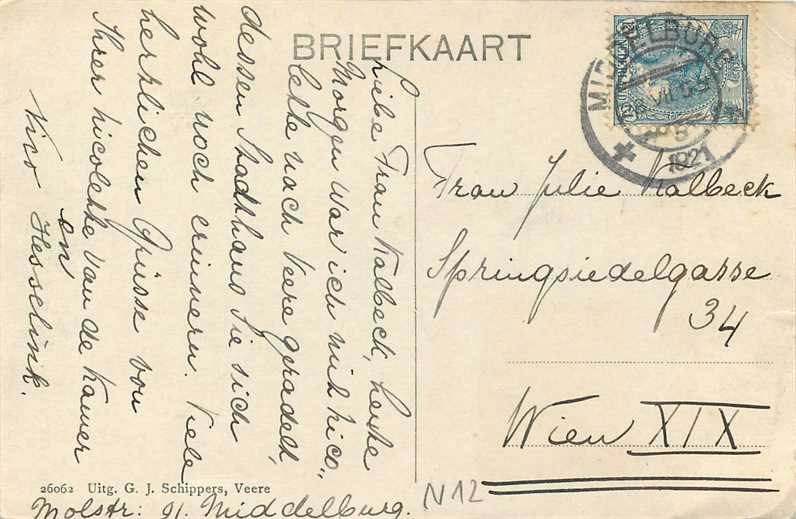 BRIEFKAART
Liebe Frau Kalbeck, heute
Morgen war ich mit Nico,,
lette nach Veere geradelt,
dessen Stadthaus Sie sich
wohl noch erinnern. Viele
herzlichen Grüsse von
Ihrer Nicolette van de Kamer
en
Hesselink.
26062 Uitg. G. J. Schippers, Veere
Molstr: 91. Middelburg.
N12
MIDDELBURG
1921
Frau Julie Kalbeck
Springsiedelgasse
34
Wien XIX